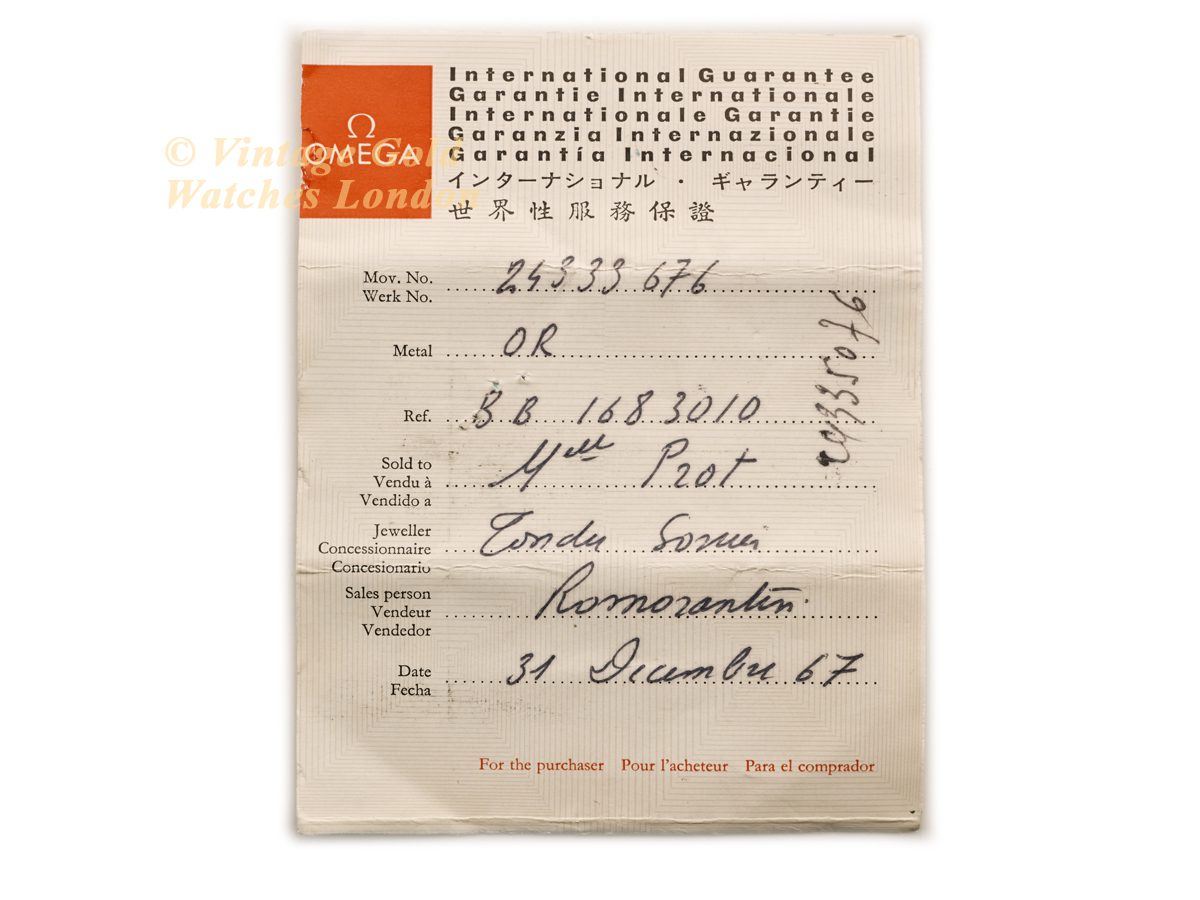 International Guarantee
Garantie Internationale
Internationale Garantie
Garanzia Internazionale
Garantía Internacional
インターナショナル ・ ギャランティー
世界性服務保證
Ω
OMEGA
© Vintage Gold
Watches London
Mov. No. 24333676
Werk No.
Metal OR
Ref. BB 1683010
Sold to
Vendu à Melle Prot
Vendido a
Jeweller
Concessionnaire
Concesionario
Sales person
Vendeur Romorantin
Vendedor
Date 31 Decembre 67
Fecha
For the purchaser Pour l'acheteur Para el comprador